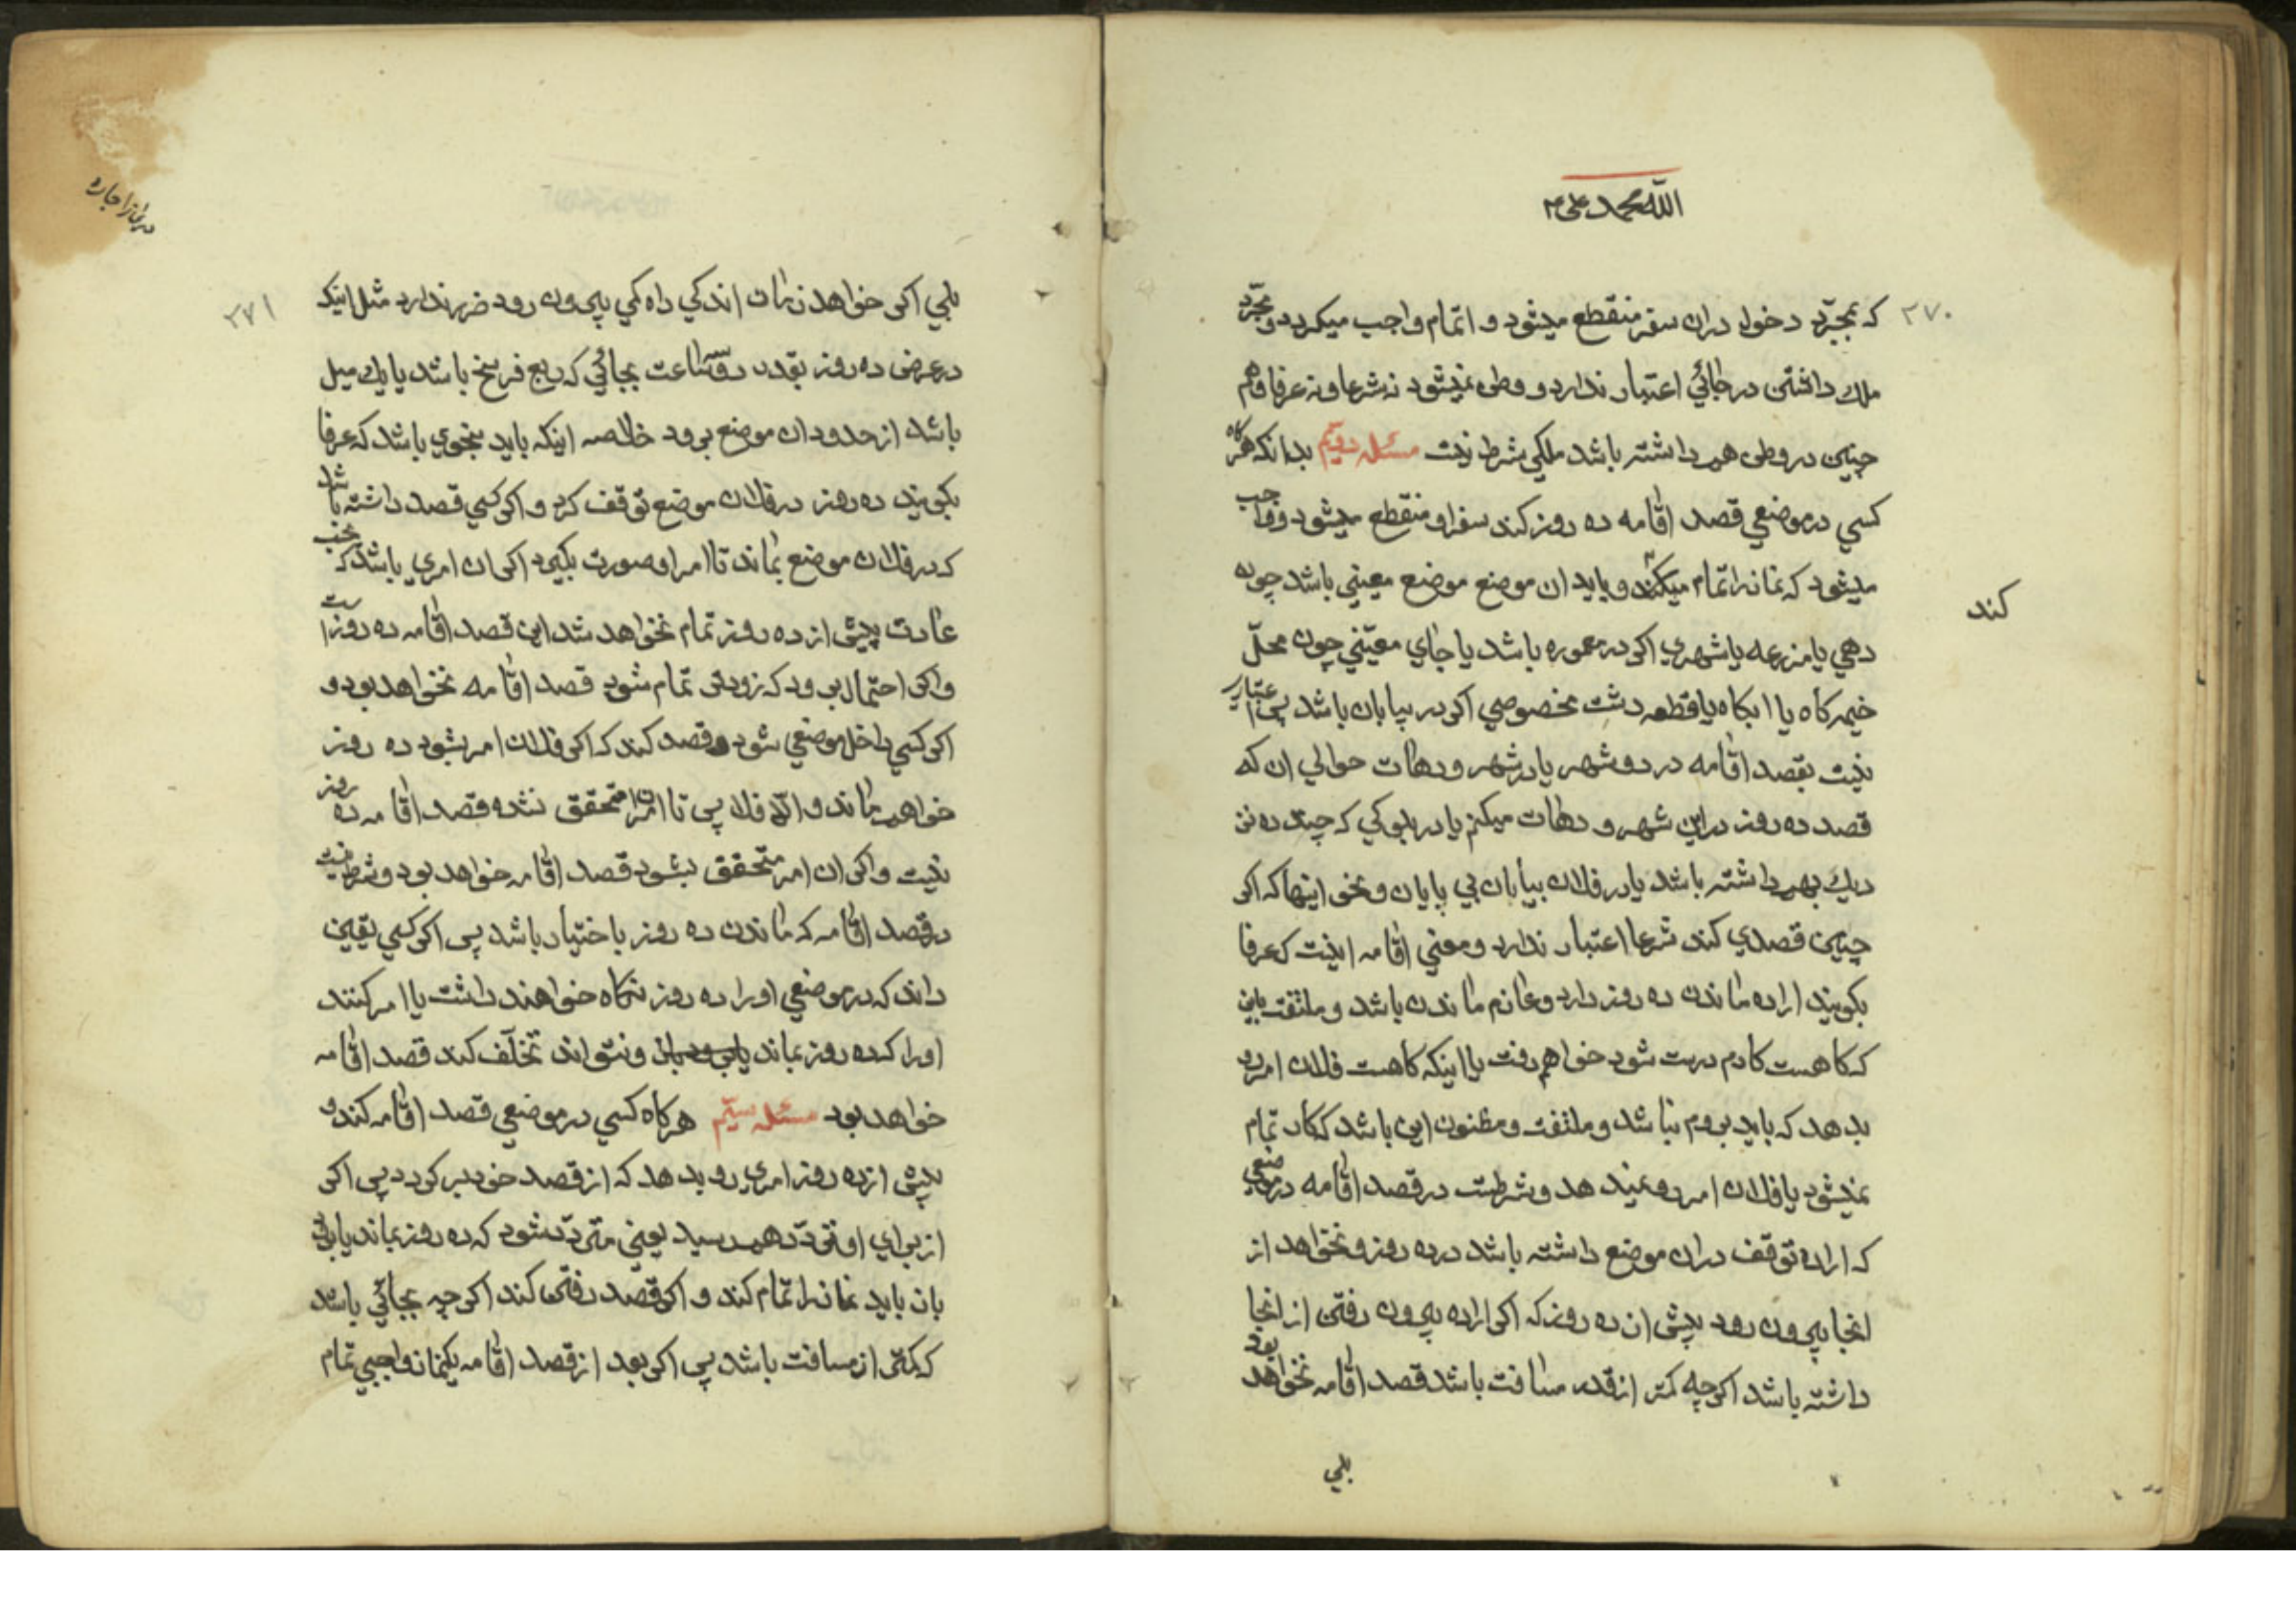 الله محمد علی
۲۷۰
که بمجرّد دخول دران سفر منقطع میشود و اتمام واجب میکردد و مجرّد
ملك داشتن در جائي اعتبار ندارد و وطن نمیشود نه شرعا و نه عرفا و هم
چنین در وطن هم داشته باشد ملکی شرط نیست مسئله دویّم بدانکه هر کاه
کسي در موضعي قصد اقامه ده روز کند سفر او منقطع میشود و واجب
میشود که نماز را تمام میکند و باید ان موضع موضع معیني باشد چون
کند
دهي یا مزرعه یا شهري اکر در معموره باشد یا جاي معیّني چون محلّ
خیمه کاه یا ابکاه یا قطعه دشت مخصوصي اکر در بیابان باشد پس اعتباري
نیست بقصد اقامه در دو شهر یا در شهر و دهات حوالي ان که
قصد ده روز در این شهر و دهات میکنم یا در بلوکي که چند ده نز
دیك بهم داشته باشد یا در فلان بیابان بي پایان و نحو اینها که اکر
چنین قصدي کند شرعا اعتبار ندارد و معني اقامه اینست که عرفا
بکویند اراده ماندن ده روز دارد و عازم ماندن باشد و ملتفت باین
که کاهست کارم درست شود خواهم رفت یا اینکه کاهست فلان امر رو
بدهد که باید بروم نباشد و ملتفت و مظنون این باشد که کار تمام
نمیشود یا فلان امر رو نمیدهد و شرطست در قصد اقامه در موضعي
که اراده توقف دران موضع داشته باشد در ده روز و نخواهد از
انجا بیرون رود پیش از ده روز که اکر اراده بیرون رفتن از انجا
داشته باشد اکر چه کمتر از قدر مسافت باشد قصد اقامه نخواهد بود
بلي
۲۷۱
بلي اکر خواهد زمان اندکي راه کمي بیرون رود ضرر ندارد مثل اینکه
در عرض ده روز بقدر دو سه ساعت بجائي که ربع فرسخ باشد یا یك میل
باشد از حدود ان موضع برود خلاصه اینکه باید بنحوي باشد که عرفا
بکویند ده روز در فلان موضع توقف کرد و اکر کسي قصد داشته باشد
که در فلان موضع بماند تا امر او صورت بکیرد اکر ان امري باشد که بحسب
عادت پیش از ده روز تمام نخواهد شد این قصد اقامه ده روز است
و اکر احتمال برود که زودتر تمام شود قصد اقامه نخواهد بود و
اکر کسي داخل موضعي شود و قصد کند که اکر فلان امر بشود ده روز
خواهم ماند و الّا فلا پس تا ان امر متحقق نشده قصد اقامه ده روز
نیست و اکر ان امر متحقق بشود قصد اقامه خواهد بود و شرط نیست
در قصد اقامه که ماندن ده روز باختیار باشد پس اکر کسي یقین
داند که در موضعي او را ده روز نکاه خواهند داشت یا امر کنند
او را که ده روز بماند و نتواند تخلّف کند قصد اقامه
خواهد بود مسئله سیّم هر کاه کسي در موضعي قصد اقامه کند و
پیش از ده روز امري رو بدهد که از قصد خود بر کردد پس اکر
از براي او تردّد بهم رسید یعني متردّد شود که ده روز بماند یا برود
باز باید نماز را تمام کند و اکر قصد رفتن کند اکر چه بجائي باشد
که کمتر از مسافت باشد پس اکر بعد از قصد اقامه یکنماز واجبي تمام